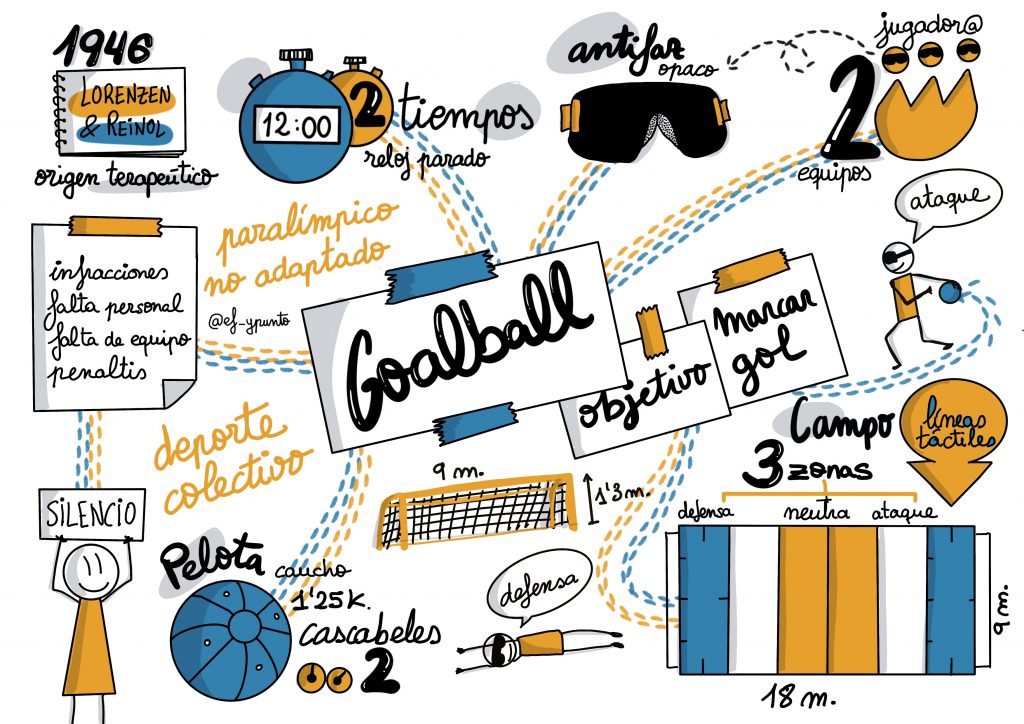 1946
LORENZEN
& REINOL
origen terapeútico
12:00
2 tiempos
reloj parado
antifaz
opaco
jugador@
2
equipos
ataque
paralímpico
no adaptado
@ef_ypunto
infracciones
falta personal
falta de equipo
penaltis
Goalball
objetivo
marcar
gol
deporte
colectivo
SILENCIO
Pelota caucho
1'25K.
cascabeles
2
9 m.
1'3m.
defensa
Campo
3 zonas
líneas
táctiles
defensa
neutra
ataque
9 m.
18 m.